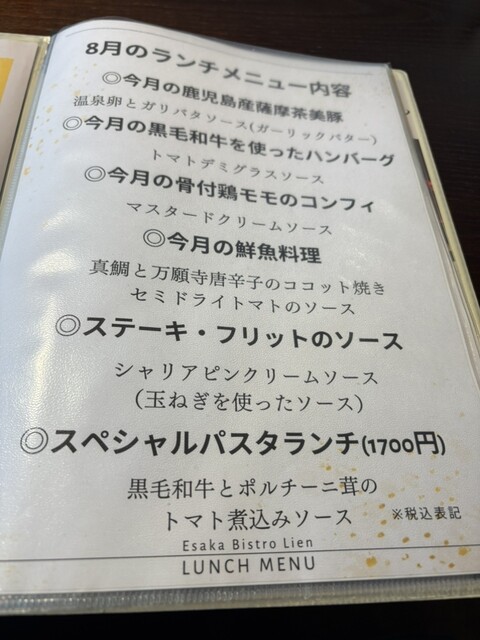 8月のランチメニュー内容
◎今月の鹿児島産薩摩茶美豚
温泉卵とガリバタソース(ガーリックバター)
◎今月の黒毛和牛を使ったハンバーグ
トマトデミグラスソース
◎今月の骨付鶏モモのコンフィ
マスタードクリームソース
◎今月の鮮魚料理
真鯛と万願寺唐辛子のココット焼き
セミドライトマトのソース
◎ステーキ・フリットのソース
シャリアピンクリームソース
（玉ねぎを使ったソース）
◎スペシャルパスタランチ(1700円)
黒毛和牛とポルチーニ茸の
トマト煮込みソース
※税込表記
Esaka Bistro Lien
LUNCH MENU